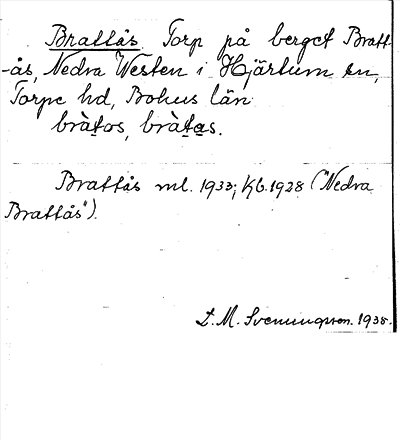 Brattås Torp på berget Bratt-
-ås, Nedra Westen i Hjärtum sn,
Torpe hd, Bohus län
bràtos, bràtas.
Brattås ml. 1933; Kb. 1928 ("Nedra
Brattås").
L. M. Svenungsson. 1935.